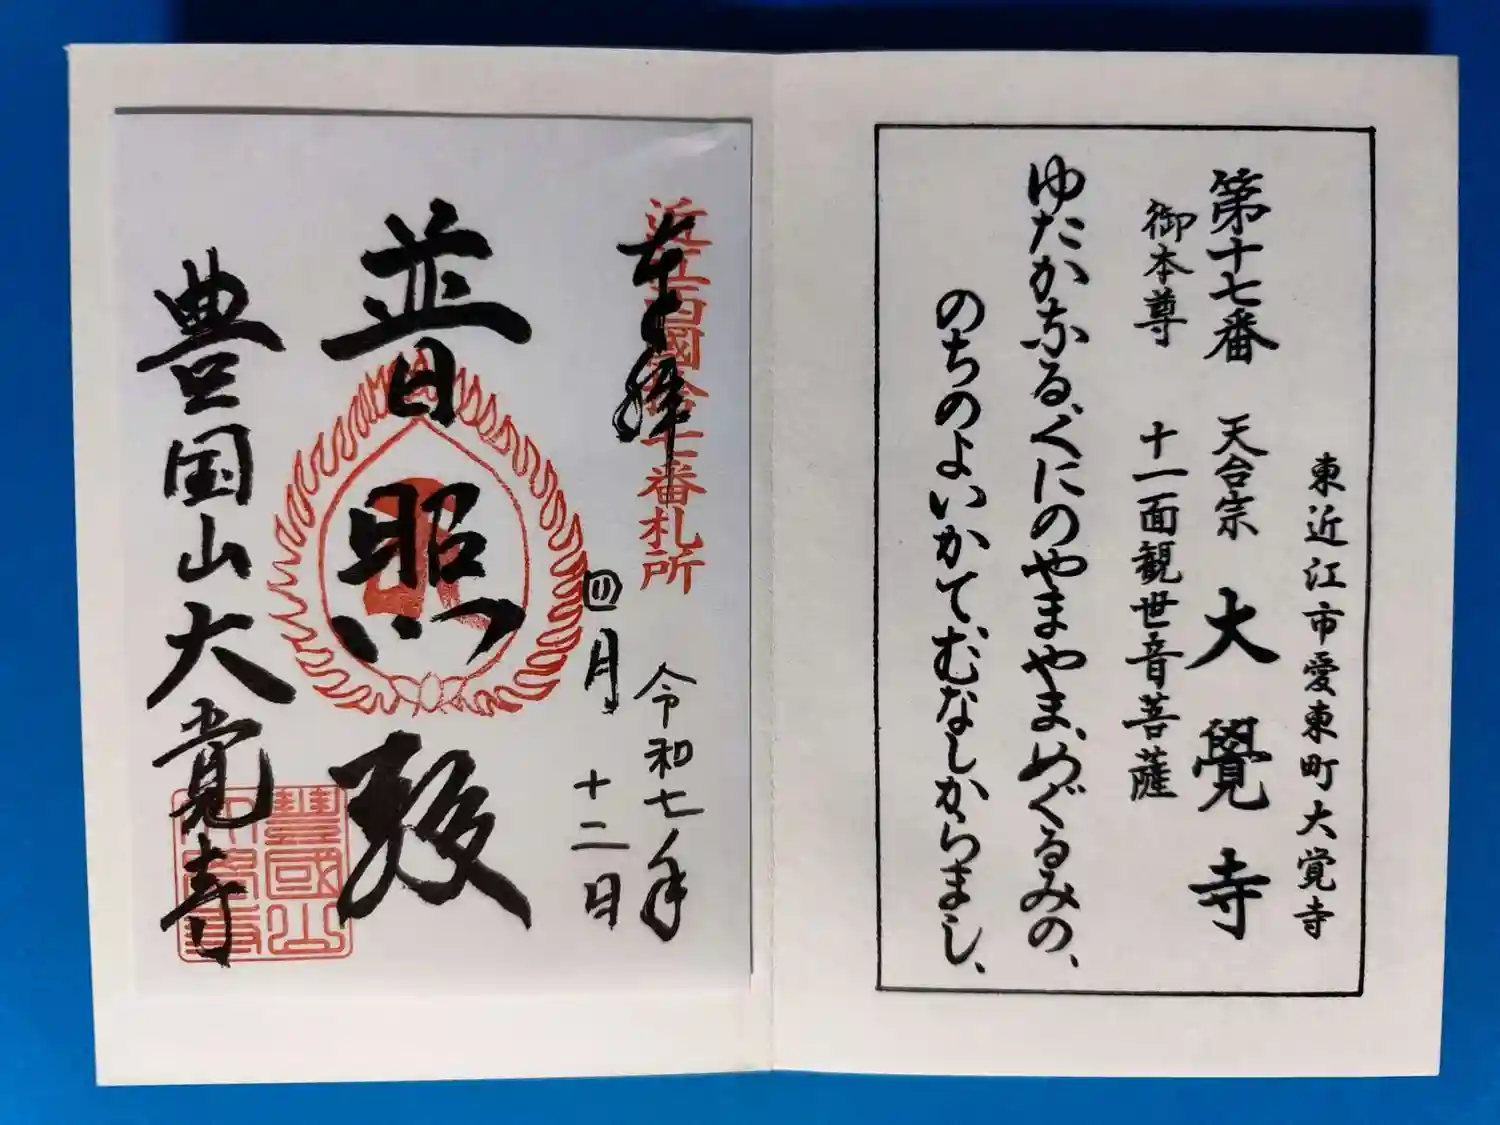 東近江市愛東町大覚寺
第十七番 天台宗 大覺寺
御本尊 十一面観世音菩薩
ゆたかなる、くにのやまやま、めぐるみの、
のちのよいかで、むなしからまし、
奉拝
近江西國第十七番札所
令和七年
四月十二日
普照殿
豊国山大覚寺
豐國山
大覺寺